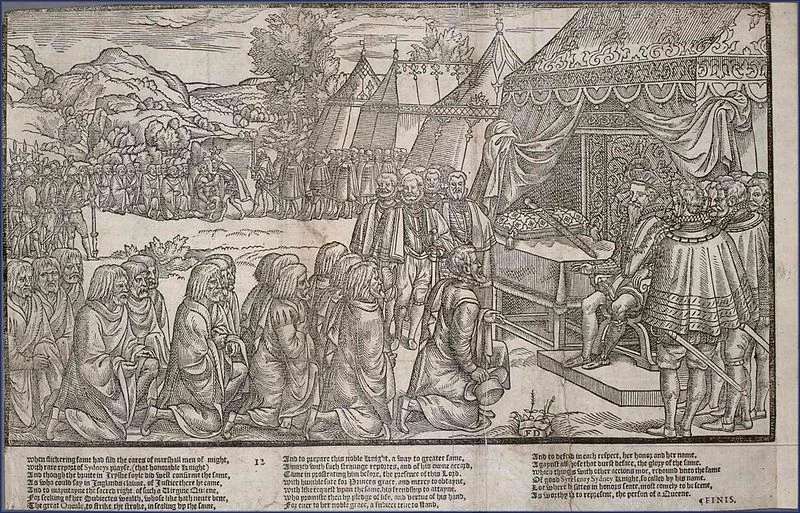 When flickering fame had fild the eares of marshall men of might,
With rare report of Sydneys prayse, (that honorable Knight)
And though the bruite in Irishe soyle did well confirme the same,
As who could say in Inglands clame, of Justice there he came,
And to mayntayne the sacred right, of such a Virgine Queene,
For seeking of her Subiectes wealth, whose like hath never bene,
The great Oneale, to strike the stroke, in sealing up the same,
12
And to prepare this noble Knight, a way to greater fame,
Amazed with such straunge reportes, and of his owne accord,
Came in prostrating him before, the presence of this Lord,
With humble sute for Princes grace, and mercy to obtayne,
With like request upon the same, his friendship to attayne,
Who promise there by pledge of life, and vertue of his hand,
For ever to her noble grace, a subiect true to stand,
And to defend in each respect, her honor and her name,
Agaynst all those that durst deface, the glory of the same.
Which thinges with other actions mor, redound unto the fame
Of good Syr Henry Sydney Knight, so called by his name.
Loe where he sittes in honors seate, most comely to be seene,
As worthy to represent, the person of a Queene.
¶ FINIS.
FD